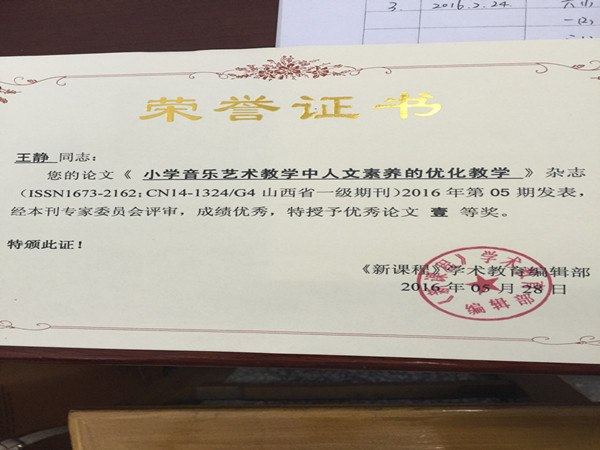 3. 2016.2.24 六(1)
一(2)
荣誉证书
王静 同志：
您的论文《 小学音乐艺术教学中人文素养的优化教学 》杂志
（ISSN1673-2162；CN14-1324/G4 山西省一级期刊）2016 年第 05 期发表，
经本刊专家委员会评审，成绩优秀，特授予优秀论文 壹 等奖。
特颁此证！
《新课程》学术教育编辑部
2016 年 05 月 28 日
《新课程》学术教育编辑部